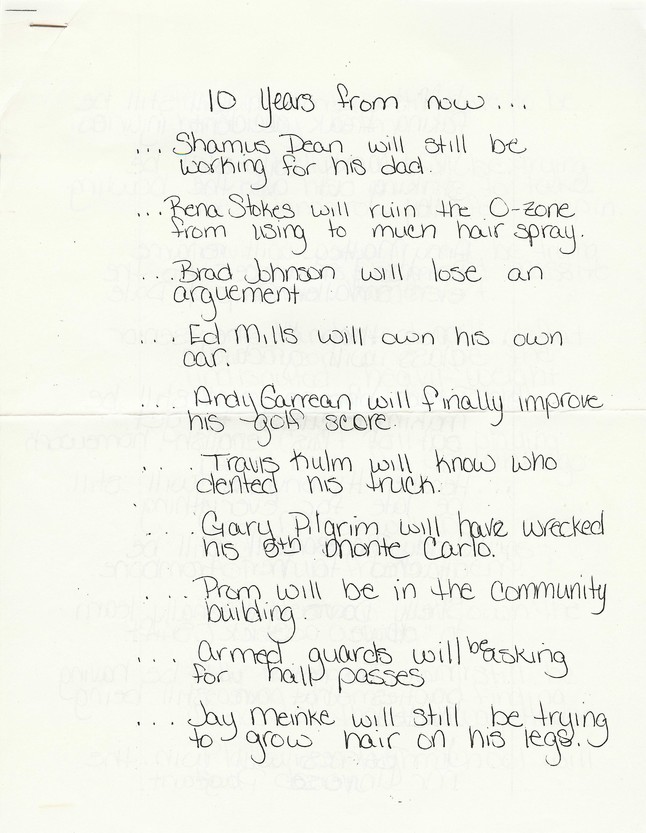 10 Years from now...
... Shamus Dean will still be
working for his dad.
... Rena Stokes will ruin the O-zone
from using to much hair spray.
... Brad Johnson will lose an
arguement
... Ed Mills will own his own
car.
... Andy Garrean will finally improve
his golf score
... Travis Kulm will know who
dented his truck.
... Gary Pilgrim will have wrecked
his 5th Monte Carlo.
... Prom will be in the community
building.
... Armed guards will be asking
for hall passes
... Jay Meinke will still be trying
to grow hair on his legs.